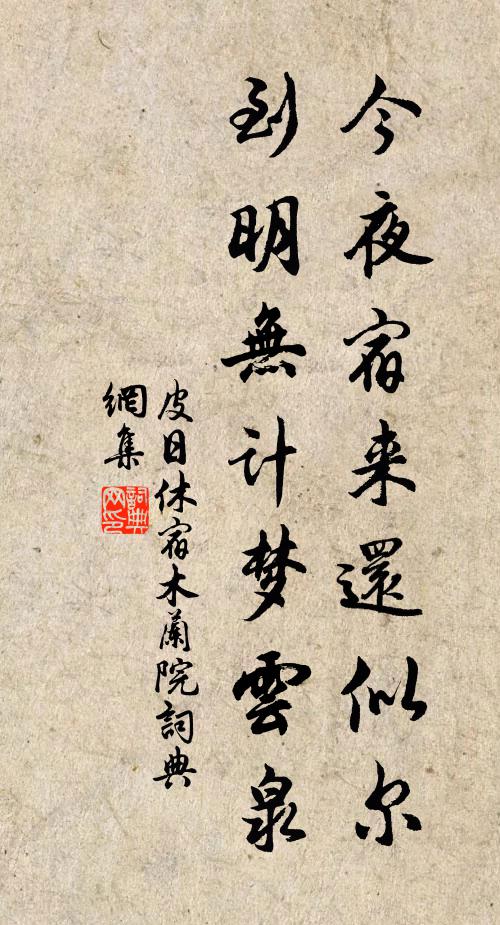 今夜宿来還似尔
到明無计梦雲泉
皮日休宿木蘭院詞典
網集
詞典
网印